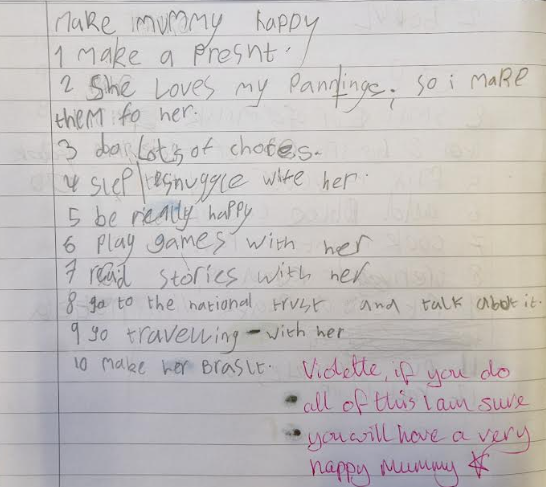 Make mummy happy
1 make a presnt.
2 She Loves my Panntings. so i maRe
theM fo her.
3 do Lots of chotes.
4 slep/snuggle wite her.
5 be really happy
6 Play games with her
7 read stories with her
8 go to the national trust and talk abot it.
9 go travelling - with her
10 make her Braslt.
Violette, if you do
all of this i am sure
you will have a very
happy Mummy